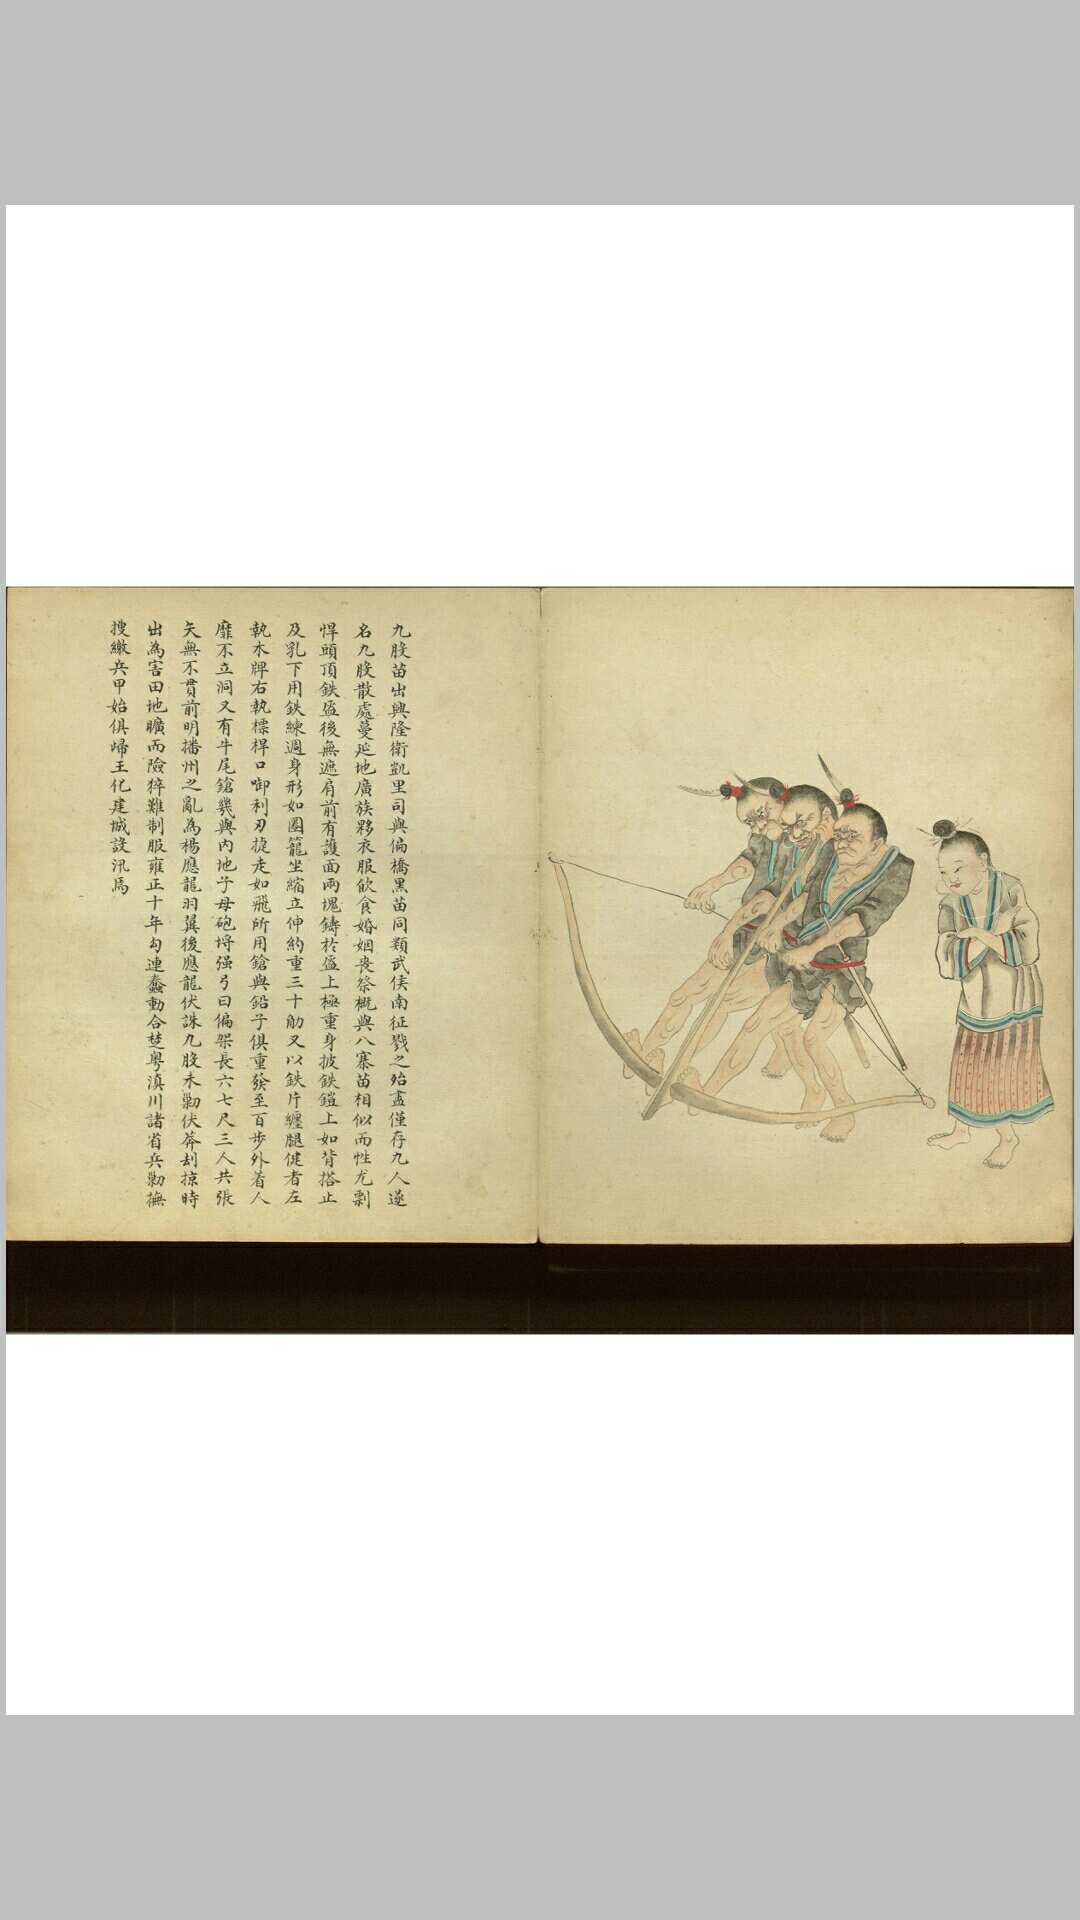 九股苗出興隆衛凱里司與偏橋黑苗同類武侯南征戮之殆盡僅存九人遂
名九股散處蔓延地廣族夥衣服飲食婚姻喪祭概與八寨苗相似而性尤剽
悍頭頂鉄盔後無遮肩前有護面兩塊鑄於盔上極重身披鉄鎧上如背搭止
及乳下用鉄練週身形如圈籠坐縮立伸約重三十觔又以鉄片纏腿健者左
執木牌右執標桿口啣利刃捷走如飛所用鎗與鉛子俱重發至百步外著人
靡不立洞又有牛尾鎗幾與內地子母砲埒强弓曰偏架長六七尺三人共張
矢無不貫前明播州之亂為楊應龍羽翼後應龍伏誅九股未勦伏莽刦掠時
出為害田地曠而險猝難制服雍正十年勾連蠢動合楚粵滇川諸省兵勦撫
搜繳兵甲始俱歸王化建城設汛焉